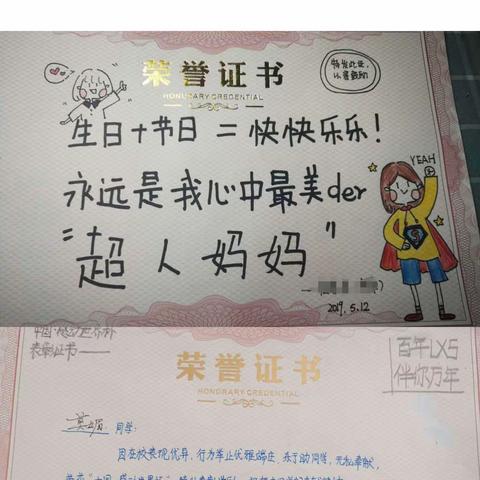 荣誉证书
HONORARY CREDENTIAL
特发此证,
以资鼓励
生日+节日=快快乐乐!
YEAH
永远是我心中最美der
"超人妈妈"
2019.5.12
表彰证书——
荣誉证书
HONORARY CREDENTIAL
百年LXS
伴你万年
同学:
因在校表现优异,行为举止优雅端庄,乐于助同学,无私奉献,